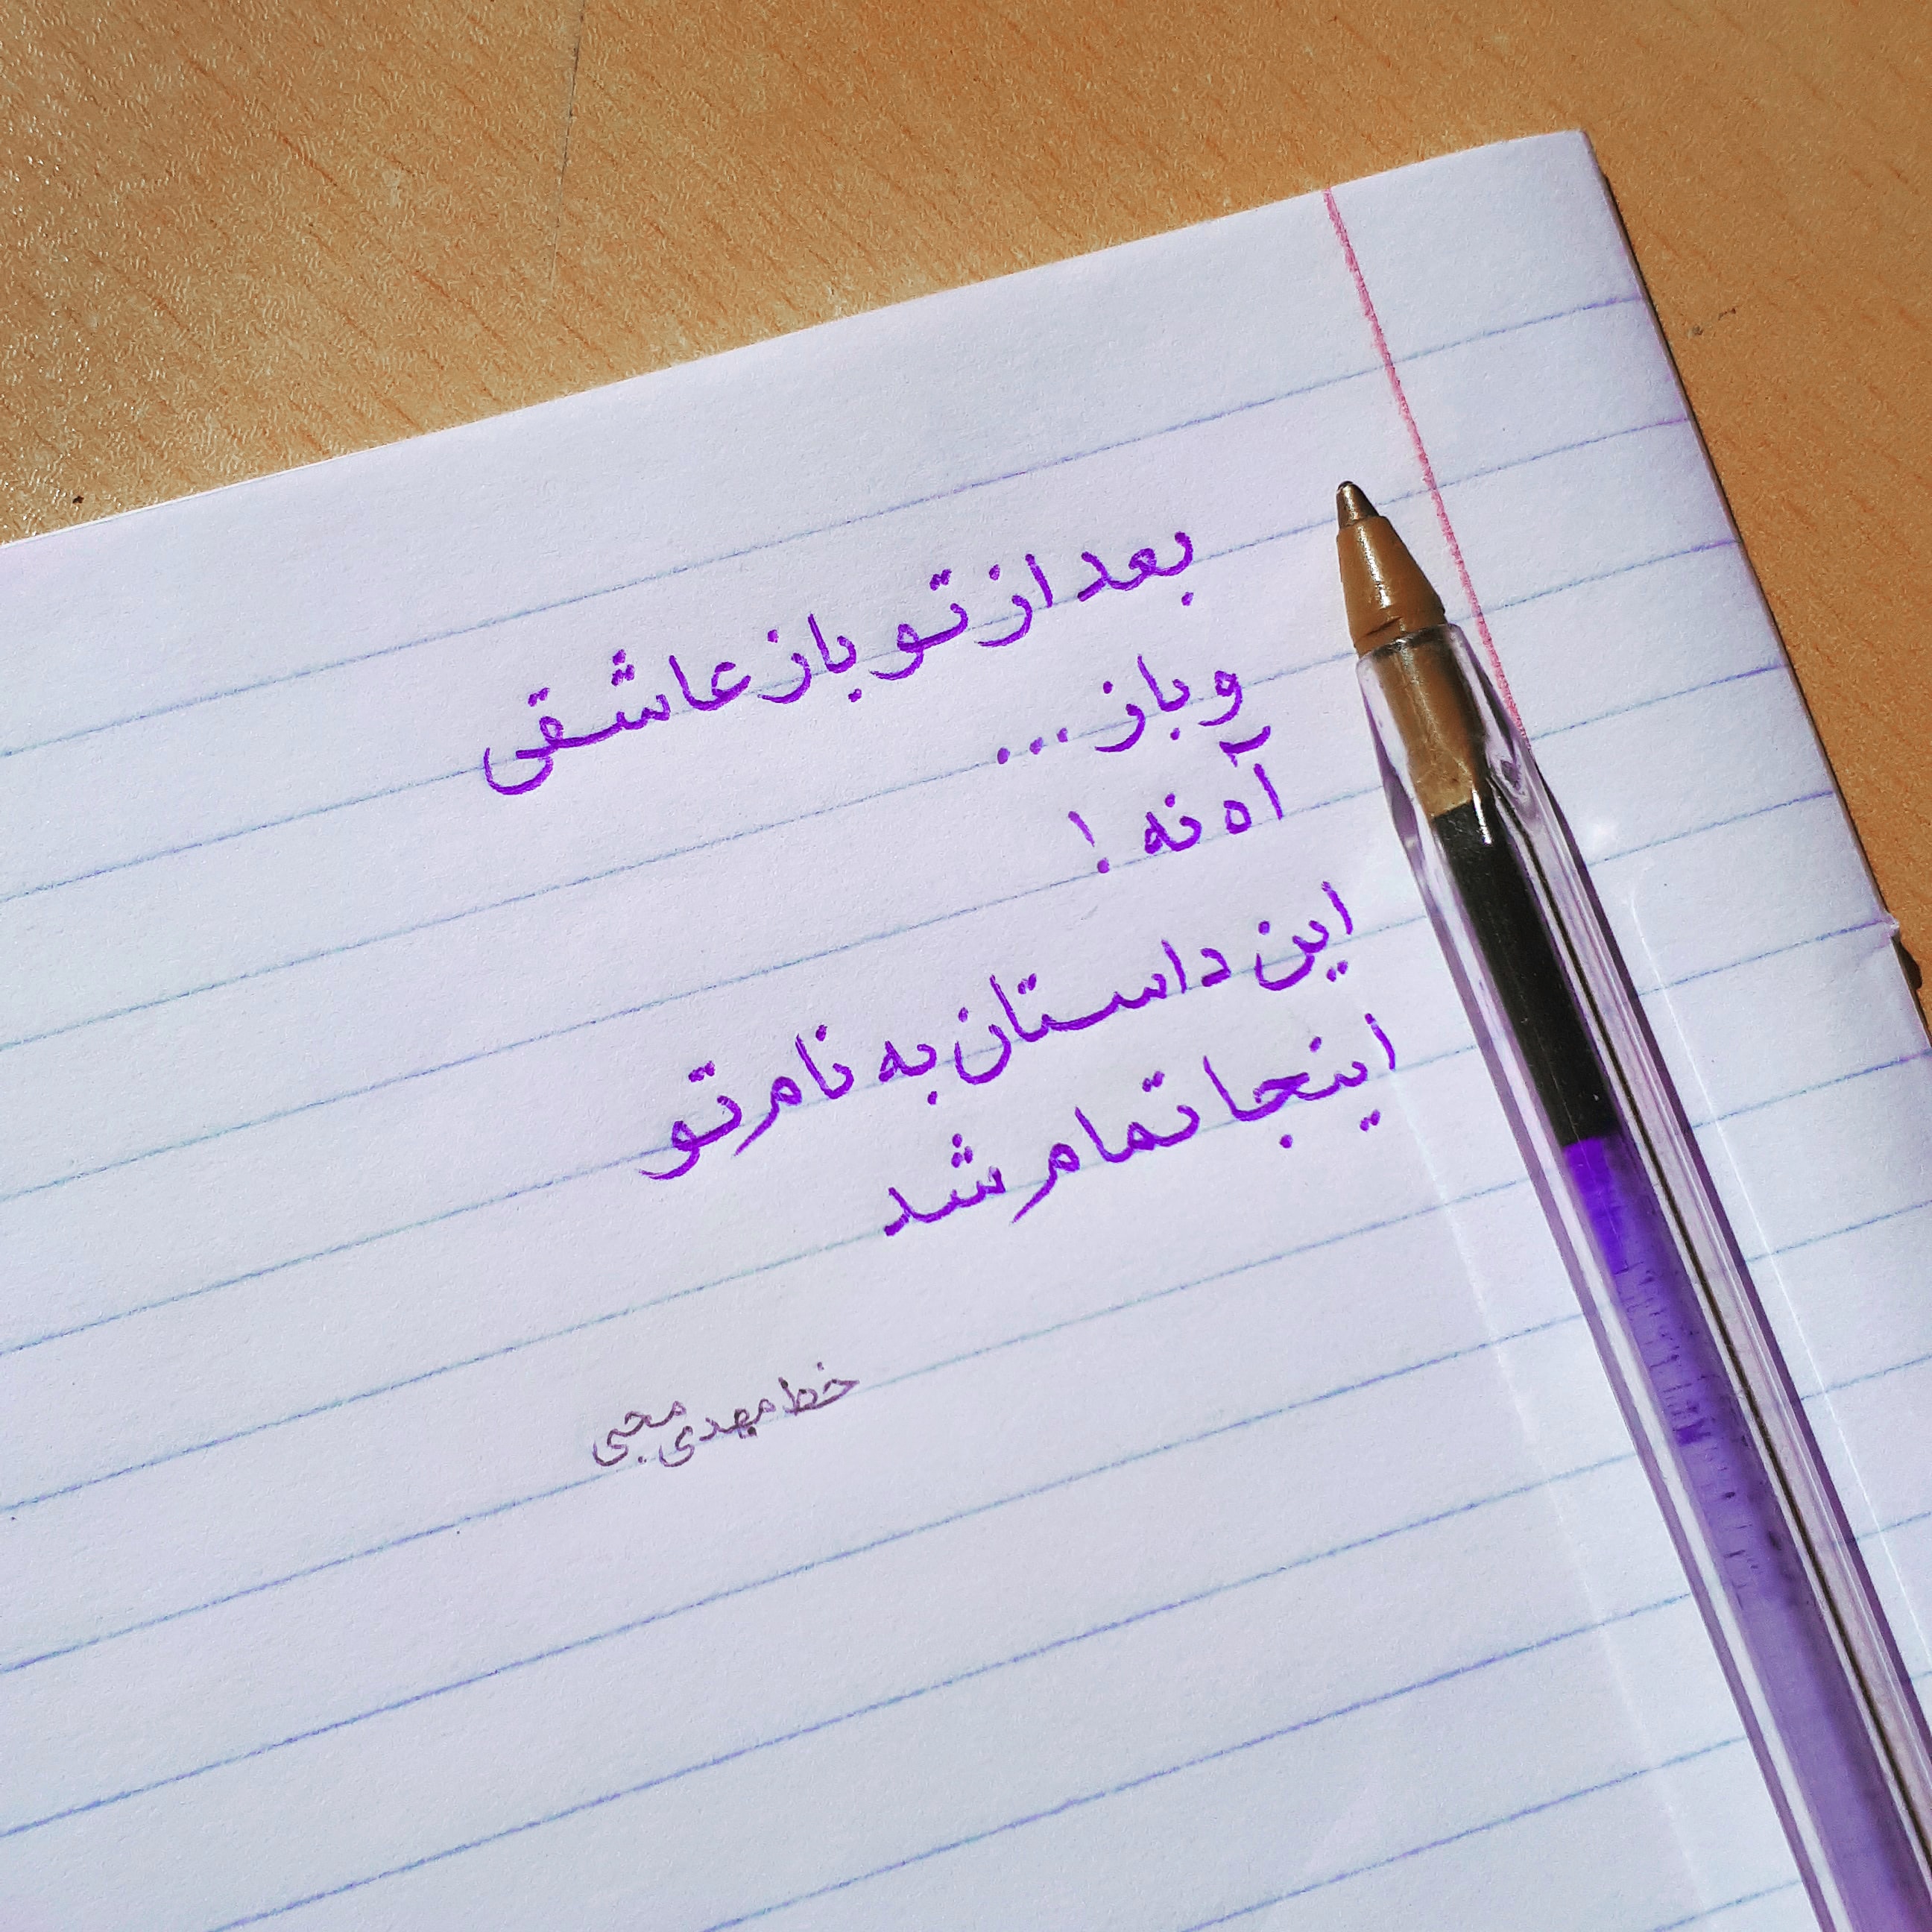 بعد از تو باز عاشقی
و باز ...
آه نه !
این داستان به نام تو
اینجا تمام شد
خط مهدی محبی